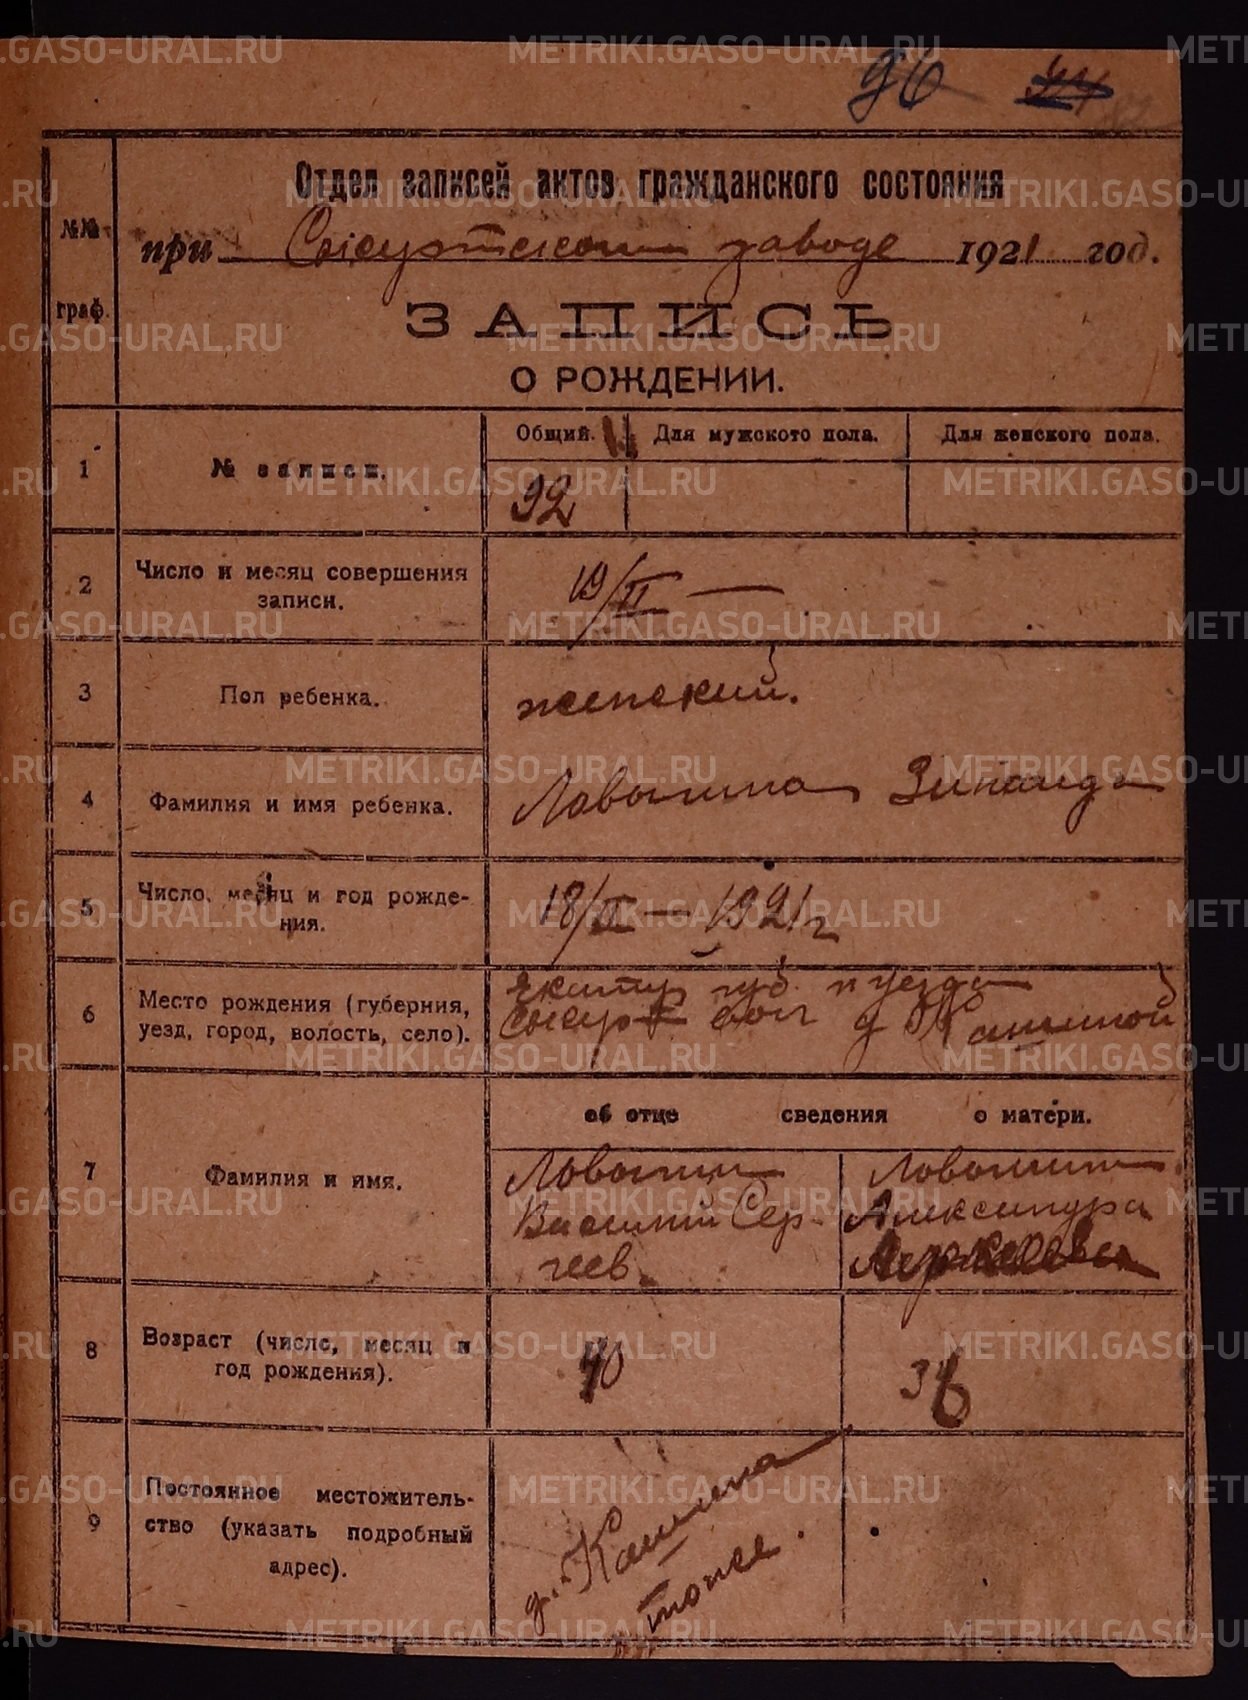 METRIKI.GASO-URAL.RU
96
№№ граф.
Отдел записей актов гражданского состояния
при Сысертском заводе 1921 год.
ЗАПИСЬ
О РОЖДЕНИИ.
1
№ записи.
Общий. Для мужского пола. Для женского пола.
92
2
Число и месяц совершения
записи.
19/II —
3
Пол ребенка.
женский.
4
Фамилия и имя ребенка.
Зинаида
5
Число, месяц и год рожде-
ния.
18/II — 1921 г
6
Место рождения (губерния,
уезд, город, волость, село).
губ. и уезда
Сысерт вол д Кашиной
об отце сведения о матери.
7
Фамилия и имя.
Василий Сер-
геев
Александра
8
Возраст (число, месяц и
год рождения).
40
36
9
Постоянное местожитель-
ство (указать подробный
адрес).
д. Кашина
тоже